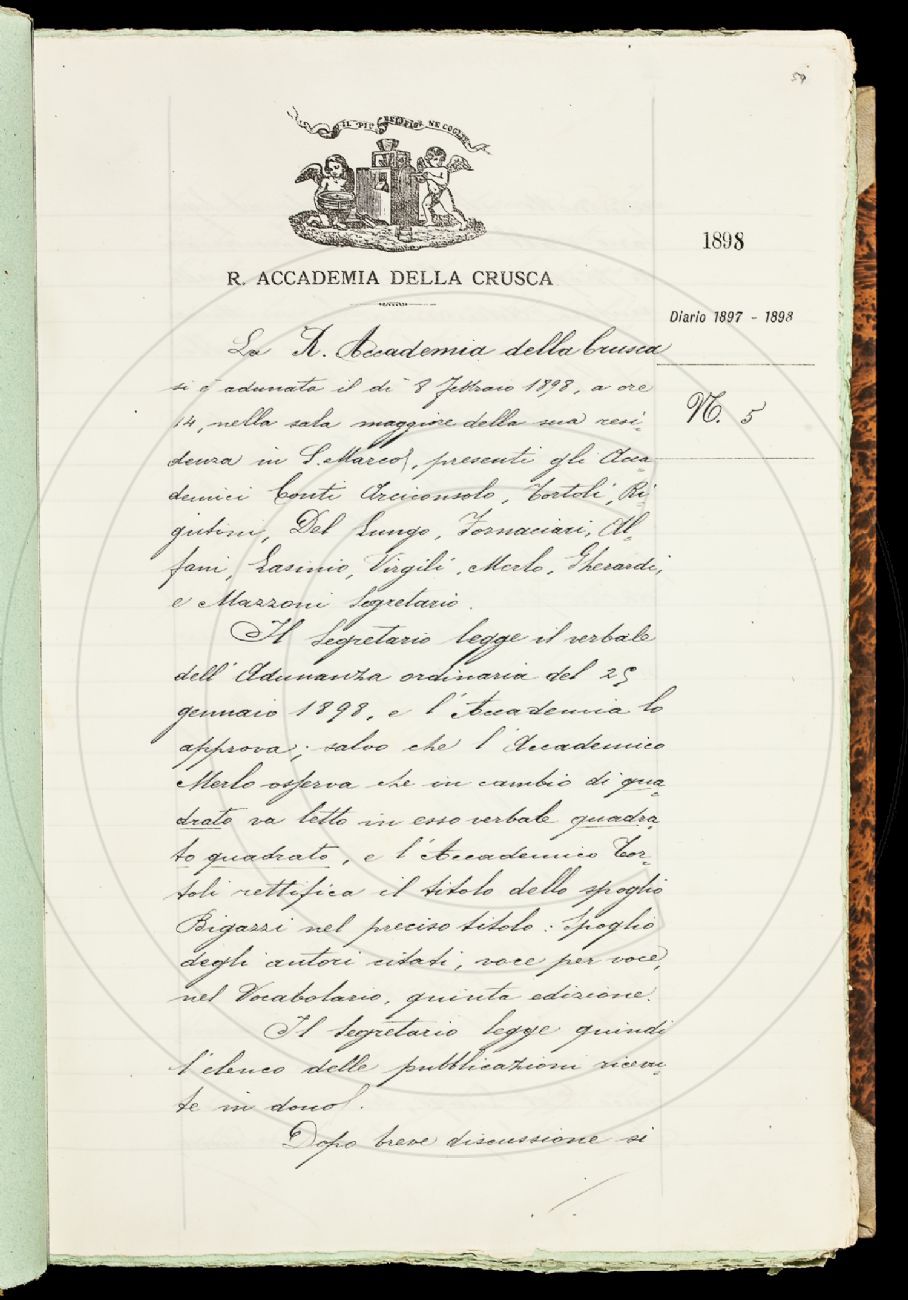 59
IL PIÙ BEL FIOR NE COGLIE
R. ACCADEMIA DELLA CRUSCA
1898
Diario 1897 - 1898
N. 5
La R. Accademia della Crusca
si è adunata il dì 8 Febbraio 1898, a ore
14, nella sala maggiore della sua resi-
denza in S. Marco, presenti gli Acca-
demici Conti Arciconsolo, Tortoli, Ri-
gutini, Del Lungo, Fornaciari, Al-
fani, Lasinio, Virgilî, Merlo, Gherardi,
e Mazzoni Segretario.
Il Segretario legge il verbale
dell'Adunanza ordinaria del 25
gennaio 1898, e l'Accademia lo
approva; salvo che l'Accademico
Merlo osserva che in cambio di qua-
drato va letto in esso verbale quadra-
to quadrato, e l'Accademico Tor-
toli rettifica il titolo dello spoglio
Bigazzi nel preciso titolo: Spoglio
degli autori citati, voce per voce,
nel Vocabolario, quinta edizione.
Il Segretario legge quindi
l'elenco delle pubblicazioni ricevu-
te in dono.
Dopo breve discussione si